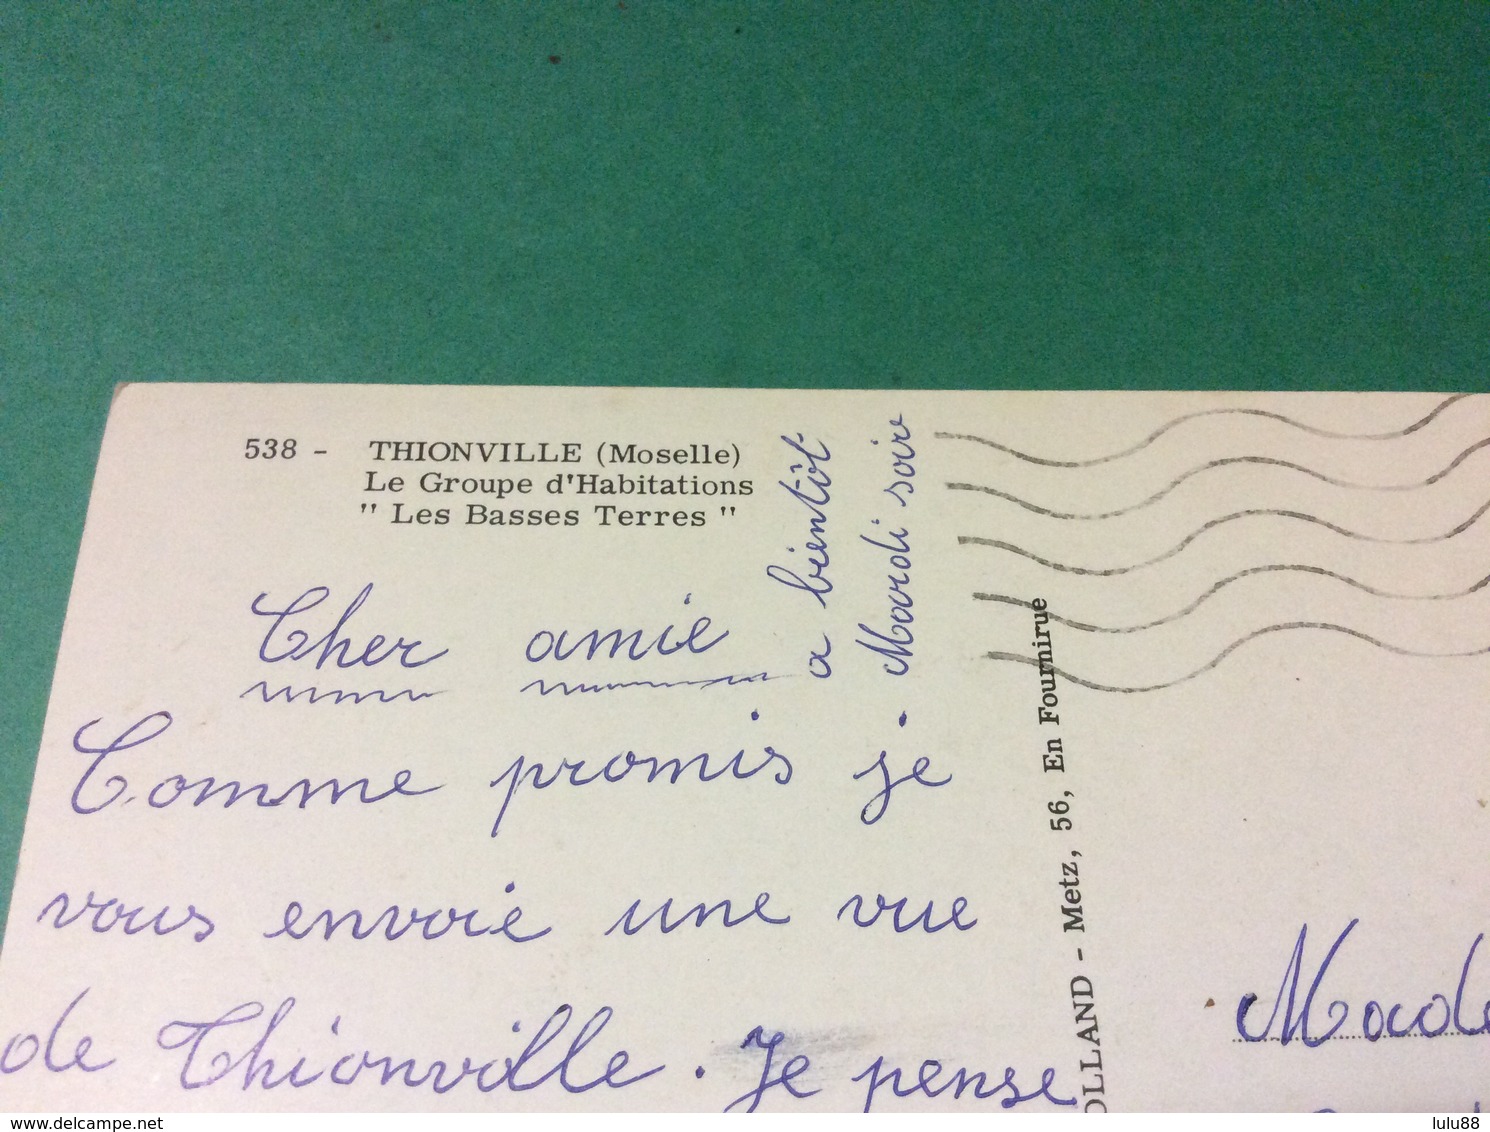 538 - THIONVILLE (Moselle)
Le Groupe d'Habitations
" Les Basses Terres "
a bientôt
Mardi soir
Cher amie
Comme promis je
vous envoie une vue
de Thionville. Je pense
OLLAND - Metz, 56, En Fournirue
Made
www.delcampe.net
lulu88